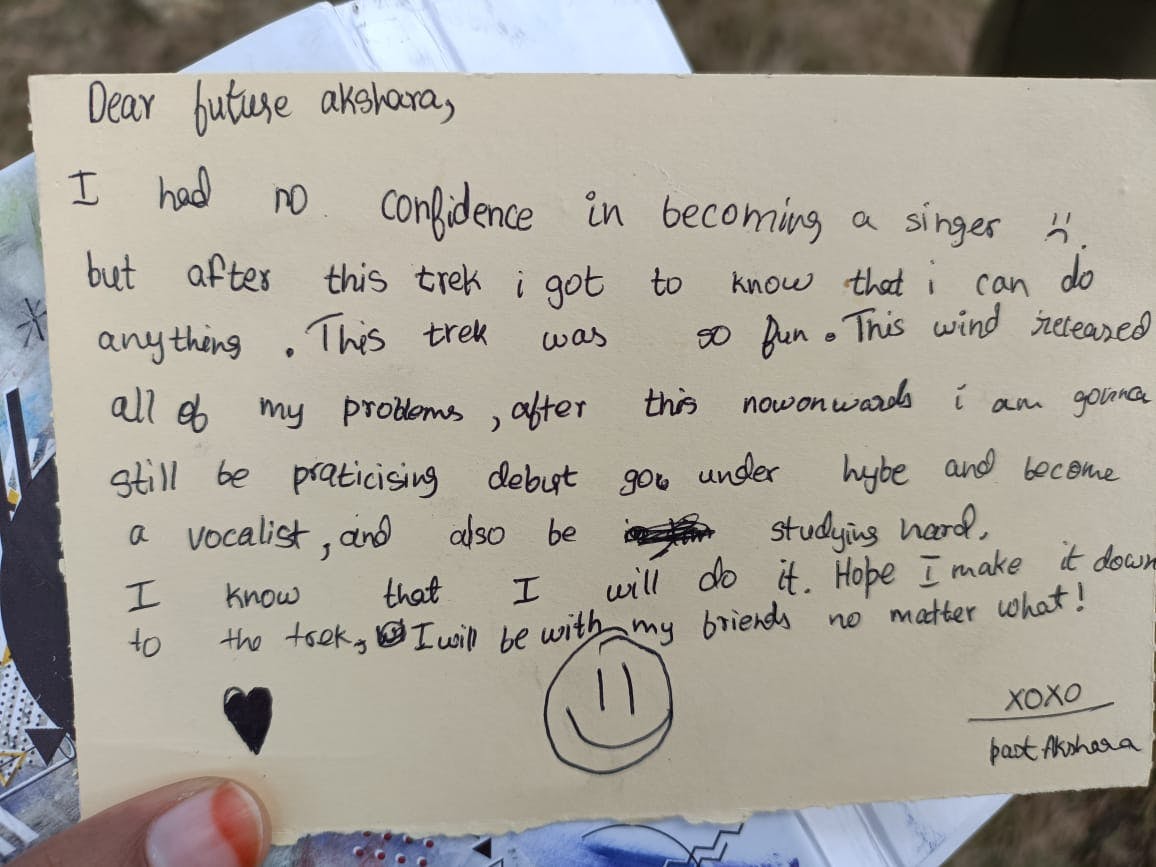 Dear future akshara,
I had no confidence in becoming a singer :(.
but after this trek i got to know that i can do
anything. This trek was so fun. This wind released
all of my problems, after this nowonwards i am gonna
still be praticising debut under hybe and become
a vocalist, and also be studying hard.
I know that I will do it. Hope I make it down
to the trek, I will be with my friends no matter what!
XOXO
past Akshara